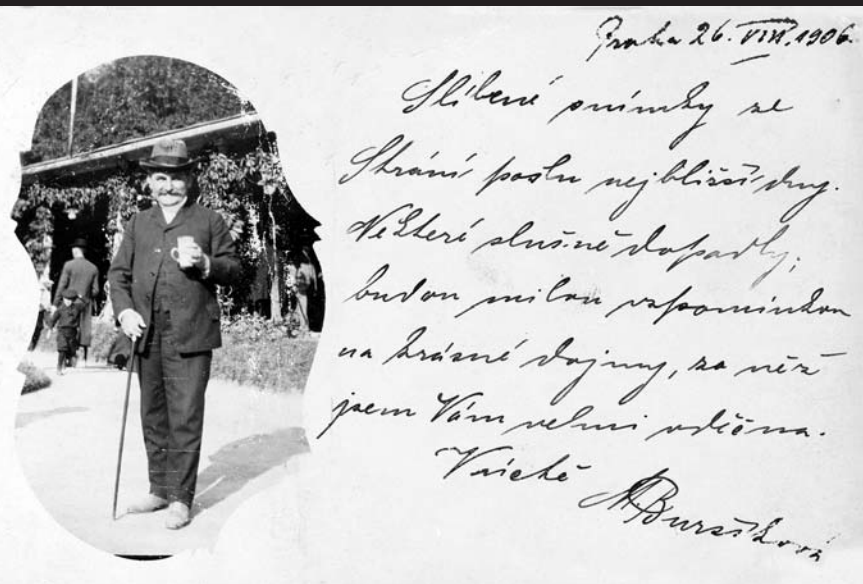 Praha 26. VIII. 1906.
Slíbené snímky ze
Strání pošlu nejbližší dny.
Některé slušně dopadly,
budou milou vzpomínkou
na krásné dojmy, za něž
jsem Vám velmi vděčna.
MBursíková